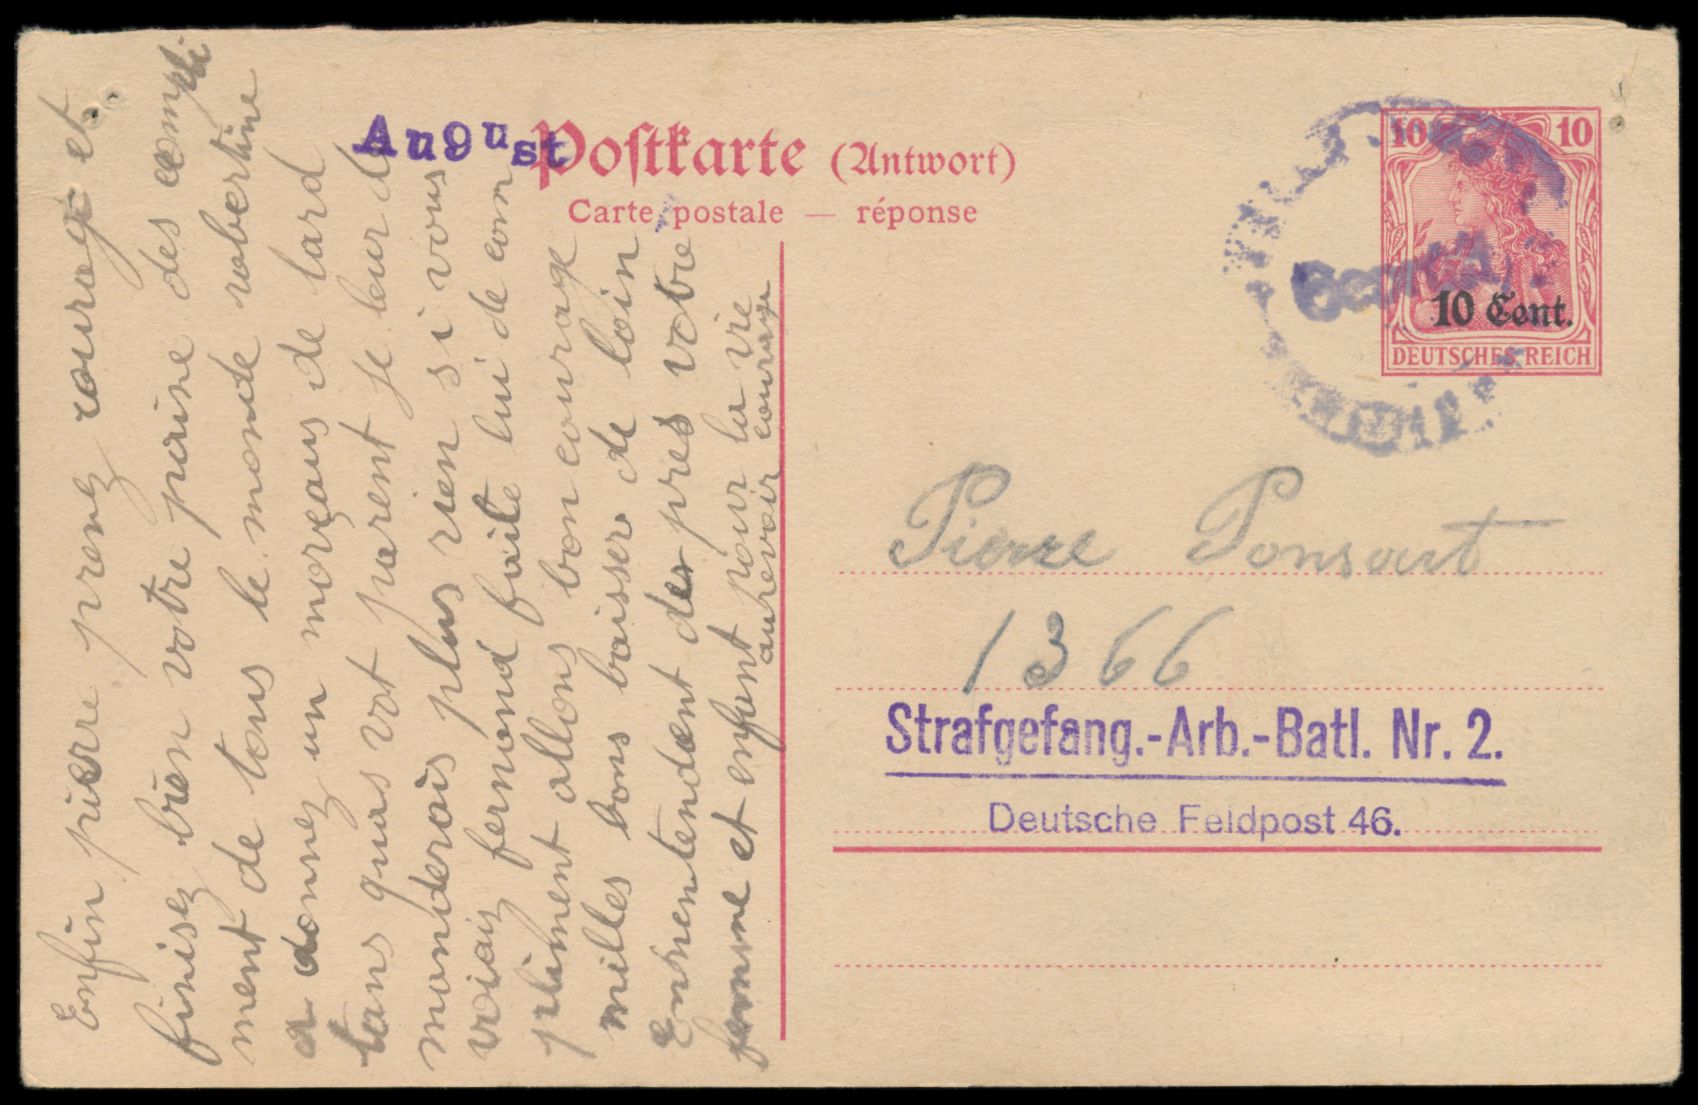 August
Postkarte (Antwort)
Carte postale — réponse
10 10
10 Cent.
DEUTSCHES REICH
Enfin pierre prenez courage et
finisez bien votre paine des compli
ment de tous le monde robertine
a donnez un morçeaus de lard
tans quas vot parent je leur di
manderais plus rien si vous
voiaiz fernand faite lui de com
pliment allons bon courage
milles bons baisser de loin
Ennentendent der pres votre
femme et enfant pour la vie
aurevoir courage
Pierre Ponsart
1366
Strafgefang.-Arb.-Batl. Nr. 2.
Deutsche Feldpost 46.